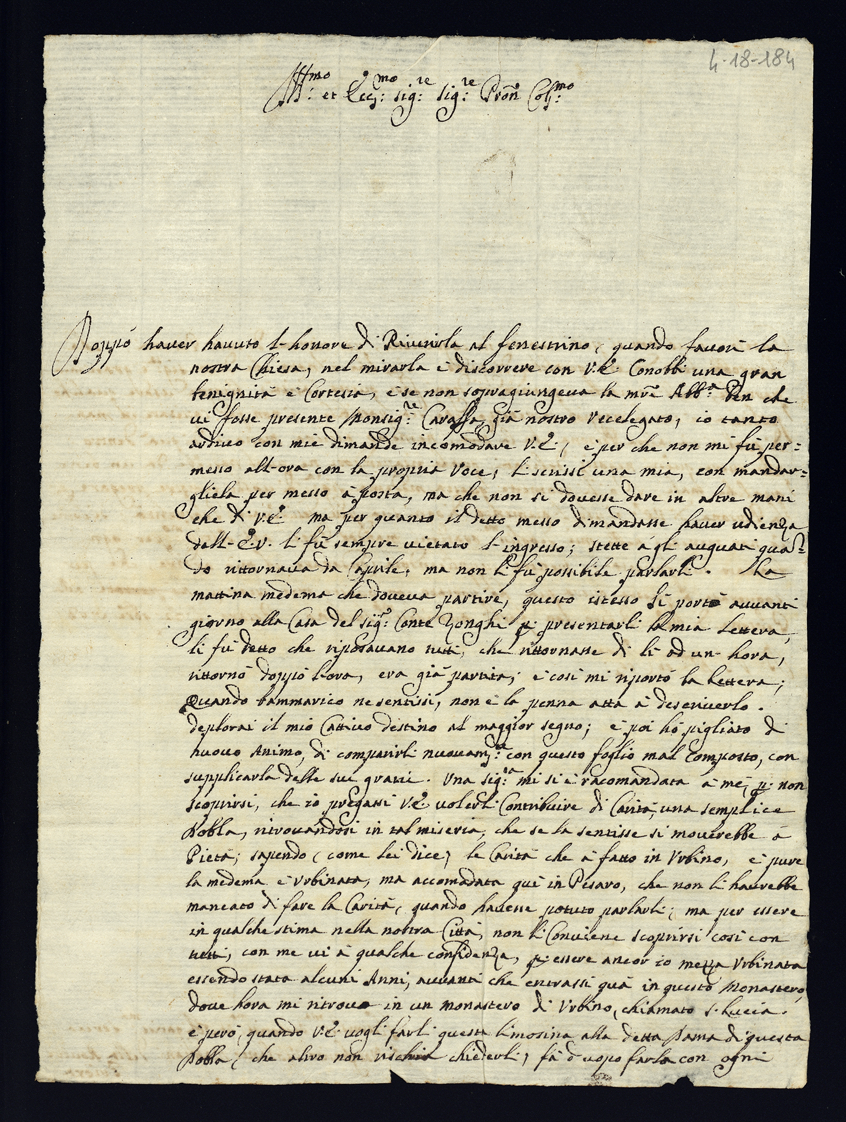 4-18-184
Ill:mo et Ecc:mo Sig:re Sig:re Pron Col:mo
Doppò haver havuto l-honore di Riverirla al fenestrino, quando favorì la
nostra Chiesa, nel mirarla e discorrere con V.E. Conobbi una gran
benignità e Cortesia, e se non sopragiungeva la mre Abb:a ben che
vi fosse presente Monsig:re Caraffa già nostro Vecelegato, io tanto
ardivo con mie dimande incomodare V.E., e per che non mi fù per=
messo all-ora con la propria Voce, li scrissi una mia, con mandar=
gliela per messo à posta, ma che non si dovesse dare in altre mani
che di V.E. ma per quanto il detto messo dimandasse haver udienza
dall-E.V. li fù sempre vietato l-ingresso; stette à gli auguati quan
do rittornava da Caprile, ma non li fù possibile parlarli. La
mattina medema che doveva partire, questo istesso si portò avvanti
giorno alla Casa del sig:r Conte Zonghi p: presentarli la mia Lettera,
li fù detto che riposavano tutti, che rittornasse di lì ad un-hora,
rittornò doppò l-ora, era già partita; e così mi riportò la Lettera;
Quando rammarico ne sentisi, non è la penna atta à descriverlo.
deplorai il mio Cattivo destino al maggior segno; e poi hò pigliato di
nuovo Animo, di comparirli nuovam:te con questo foglio mal Composto, con
supplicarla delle sue gratie. Una sig:ra mi si è racomandata à mè, p: non
scoprirsi, che io pregassi V.E. volerli Contribuire di Carità, una semplice
Dobla, ritrovandosi in tal miseria, che se la sentisse si moverebbe à
Pietà; sapendo (come lei dice) le Carità che à fatto in Urbino, e pure
la medema è Urbinata, ma accomodata quì in Pesaro, che non li haverebbe
mancato di fare la Carità, quando havesse potuto parlarli; ma per essere
in qualche stima nella nostra Città, non li Conviene scoprirsi così con
tutti, con me vi à qualche confidenza, p: essere ancor io mezza Urbinata
essendo stata alcuni Anni, avvanti che entrassi quà in questo Monastero,
dove hora mi ritrovo in un monastero di Urbino, chiamato S. Lucia.
e però quando V.E. vogli farli questa limosina alla detta Dama di questa
Dobla, che altro non rischia chiederli, fà d-uopo farla con ogni